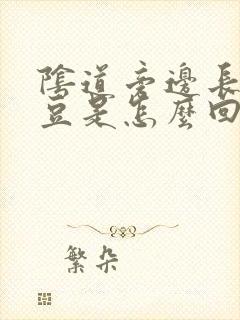 陰道旁邊長
豆是怎麼回
繁朵